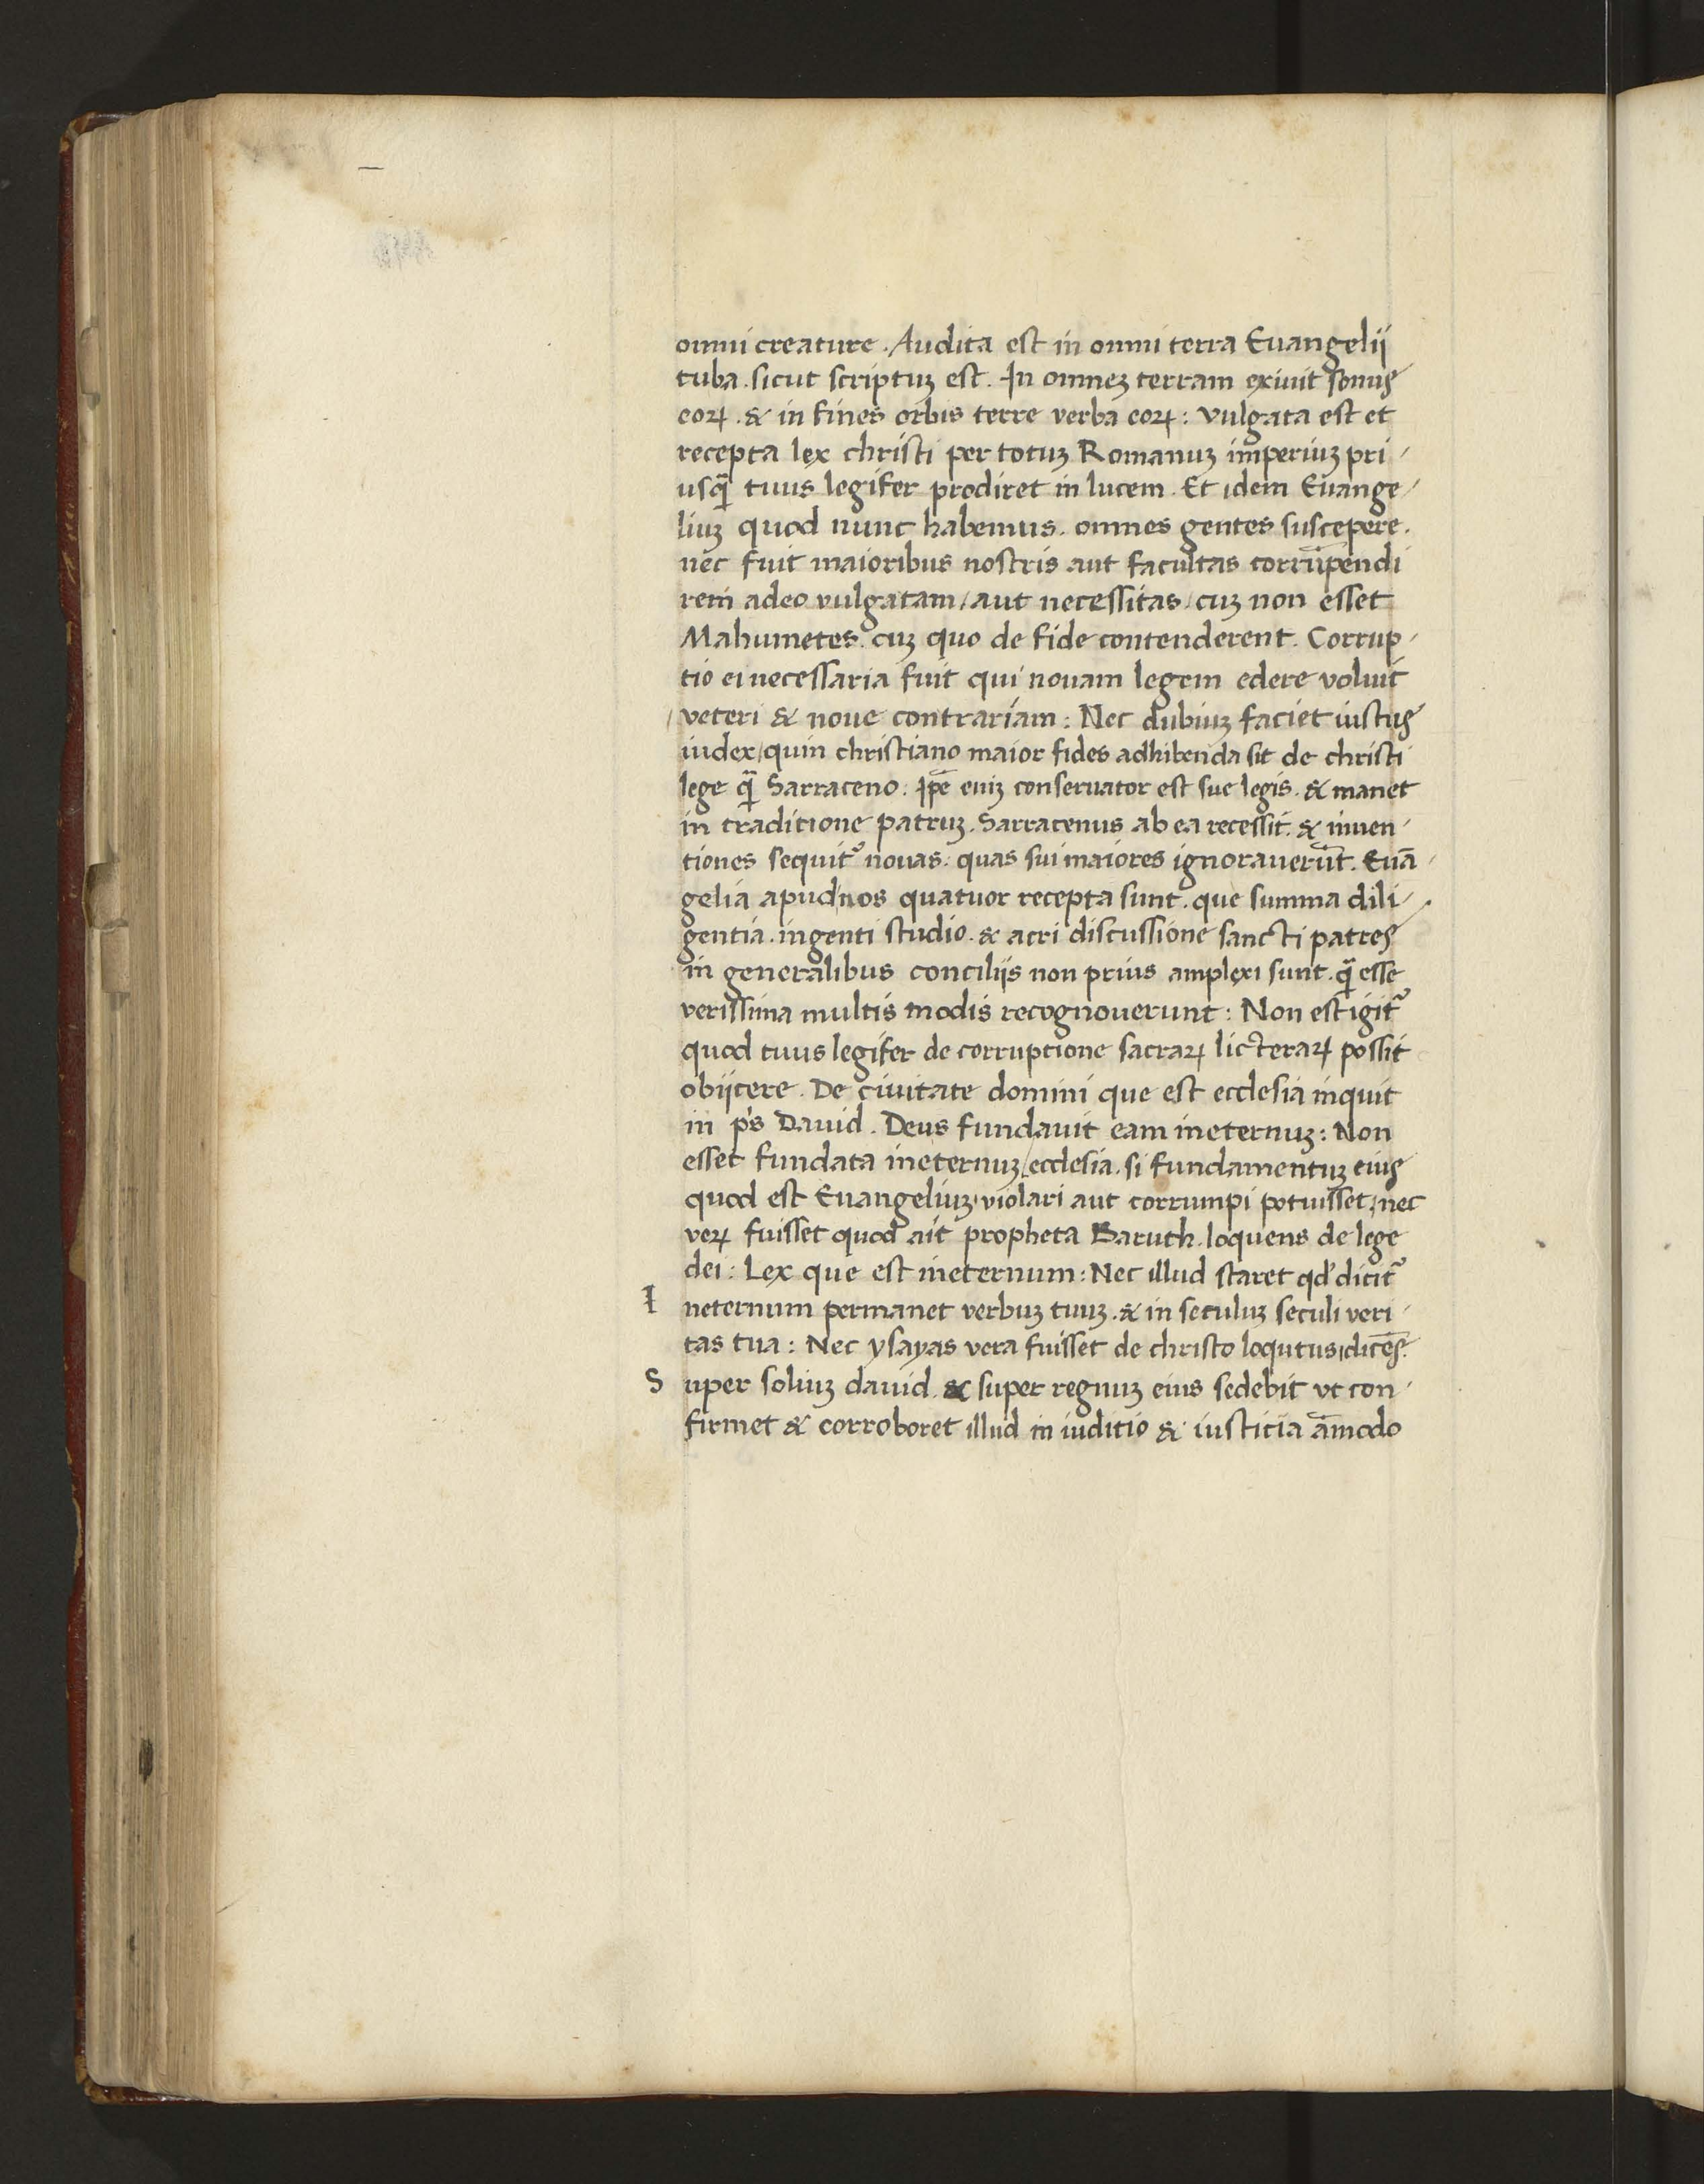 omni creature. Audita est in omni terra Euangelij
tuba. sicut scriptuʒ est. In omneʒ terram exiuit sonus
eoꝝ. & in fines orbis terre verba eoꝝ: vulgata est et
recepta lex christi per totuʒ Romanuʒ imperiuʒ pri/
usq̄ tuus legifer prodiret in lucem. Et idem Euange/
liuʒ quod nunc habemus. omnes gentes suscepere.
nec fuit maioribus nostris aut facultas corrūpendi
rem adeo vulgatam/aut necessitas/cuʒ non esset
Mahumetes. cuʒ quo de fide contenderent. Corrup/
tio ei necessaria fuit qui nouam legem edere voluit
veteri & noue contrariam: Nec dubiuʒ faciet iustus
iudex/quin christiano maior fides adhibenda sit de christi
lege q̄ Sarraceno: Ip̄e eniʒ conseruator est sue legis. & manet
in traditione patruʒ. Sarracenus ab ea recessit. & inuen/
tiones sequit᷑ nouas. quas sui maiores ignorauerūt. Euā/
gelia apud nos quatuor recepta sunt. que summa dili/
gentia. ingenti studio. & acri discussione sancti patres
in generalibus concilijs non prius amplexi sunt. q̄ esse
verissima multis modis recognouerunt: Non est igit᷑
quod tuus legifer de corruptione sacraꝝ licteraꝝ possit
obijcere. De ciuitate domini que est ecclesia inquit
in ps̄ Dauid. Deus fundauit eam ineternuʒ: Non
esset fundata ineternuʒ/ecclesia. si fundamentuʒ eius
quod est Euangeliuʒ/violari aut corrumpi potuisset/nec
veꝝ fuisset quod ait propheta Baruth. loquens de lege
dei: Lex que est ineternum: Nec illud staret qd' dicit᷑
I neternum permanet verbuʒ tuuʒ. & in seculuʒ seculi veri/
tas tua: Nec ysayas vera fuisset de christo loqutus/dicēs.
S uper soliuʒ dauid. & super regnuʒ eius sedebit vt con/
firmet & corroboret illud in iuditio & iusticia āmodo